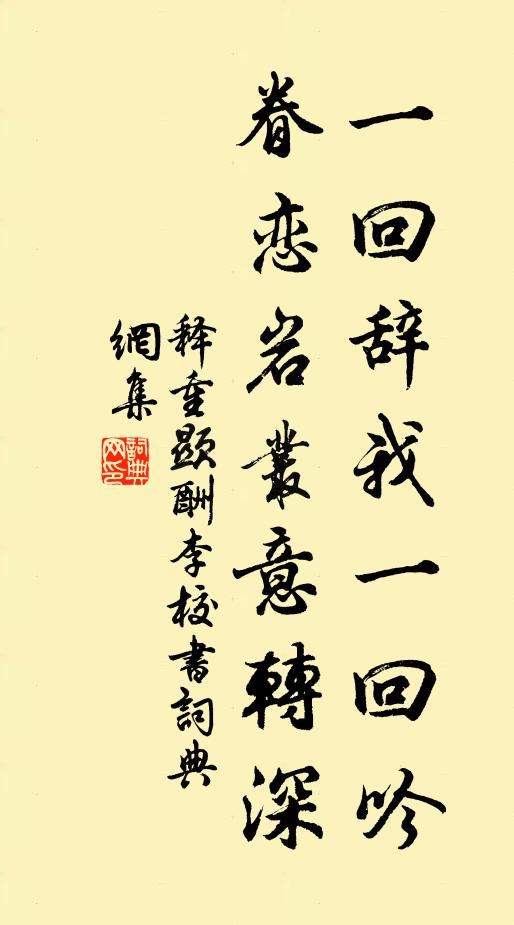 一回辞我一回吟
眷恋岩叢意轉深
释重顯酬李校書詞典
網集
詞典
网印